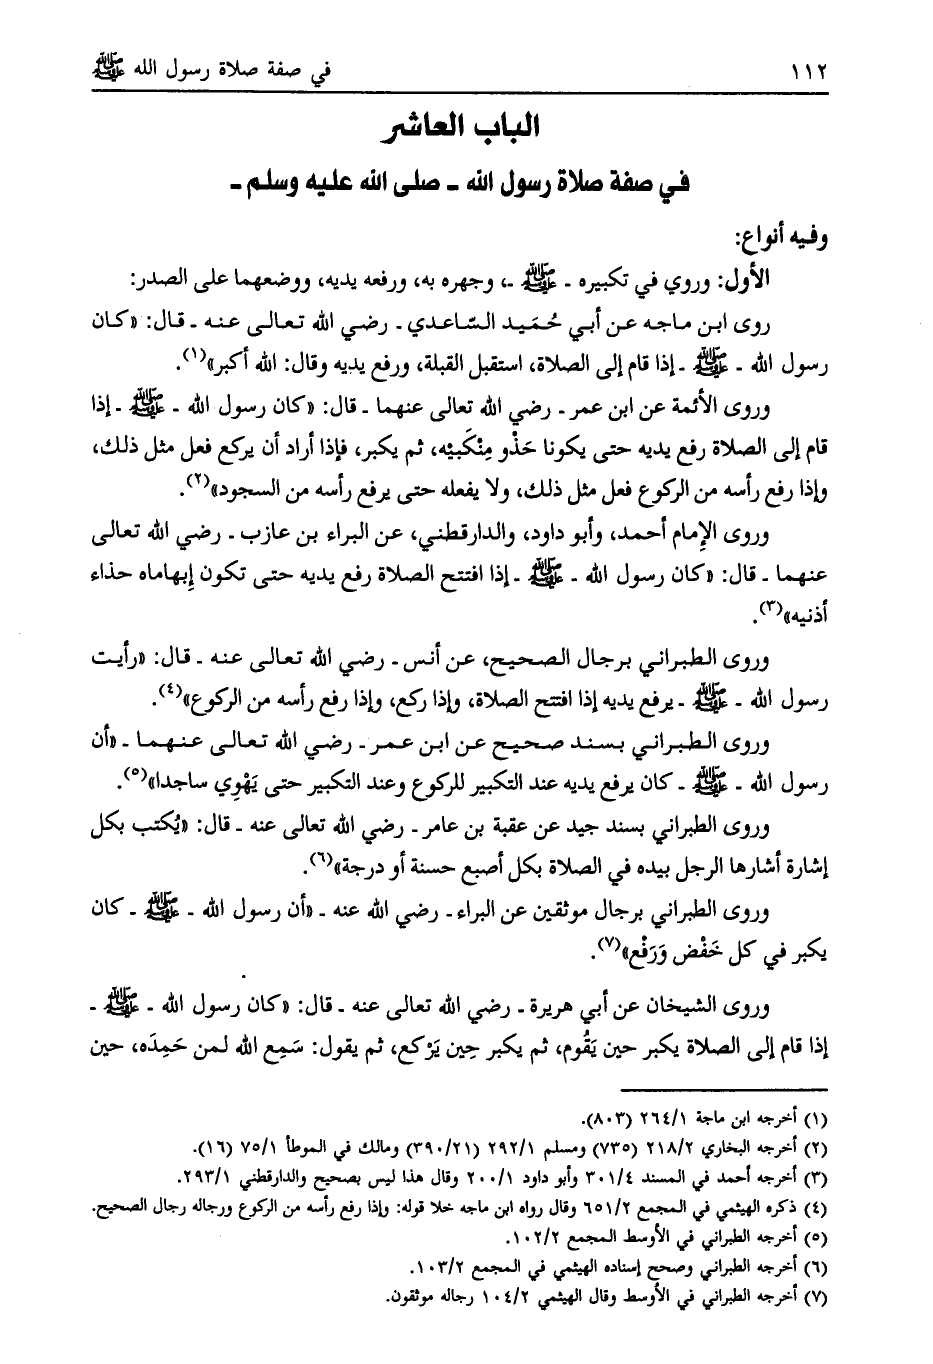 ١١٢
في صفة صلاة رسول الله ﷺ
الباب العاشر
في صفة صلاة رسول الله ـ صلى الله عليه وسلم ـ
وفيه أنواع:
الأول: وروي في تكبيره ـ ﷺ ـ، وجهره به، ورفعه يديه، ووضعهما على الصدر:
روى ابن ماجه عن أبي حُمَيد السَّاعدي ـ رضي الله تعالى عنه ـ قال: «كان
رسول الله ـ ﷺ ـ إذا قام إلى الصلاة، استقبل القبلة، ورفع يديه وقال: الله أكبر»(١).
وروى الأئمة عن ابن عمر ـ رضي الله تعالى عنهما ـ قال: «كان رسول الله ـ ﷺ ـ إذا
قام إلى الصلاة رفع يديه حتى يكونا حَذْو مِنْكَبيْه، ثم يكبر، فإذا أراد أن يركع فعل مثل ذلك،
وإذا رفع رأسه من الركوع فعل مثل ذلك، ولا يفعله حتى يرفع رأسه من السجود»(٢).
وروى الإمام أحمد، وأبو داود، والدارقطني، عن البراء بن عازب ـ رضي الله تعالى
عنهما ـ قال: «كان رسول الله ـ ﷺ ـ إذا افتتح الصلاة رفع يديه حتى تكون إبهاماه حذاء
أذنيه»(٣).
وروى الطبراني برجال الصحيح، عن أنس ـ رضي الله تعالى عنه ـ قال: «رأيت
رسول الله ـ ﷺ ـ يرفع يديه إذا افتتح الصلاة، وإذا ركع، وإذا رفع رأسه من الركوع»(٤).
وروى الطبراني بسند صحيح عن ابن عمر ـ رضي الله تعالى عنهما ـ «أن
رسول الله ـ ﷺ ـ كان يرفع يديه عند التكبير للركوع وعند التكبير حتى يَهْوِي ساجدا»(٥).
وروى الطبراني بسند جيد عن عقبة بن عامر ـ رضي الله تعالى عنه ـ قال: «يُكتب بكل
إشارة أشارها الرجل بيده في الصلاة بكل أصبع حسنة أو درجة»(٦).
وروى الطبراني برجال موثقين عن البراء ـ رضي الله عنه ـ «أن رسول الله ـ ﷺ ـ كان
يكبر في كل خَفْض وَرَفْع»(٧).
وروى الشيخان عن أبي هريرة ـ رضي الله تعالى عنه ـ قال: «كان رسول الله ـ ﷺ ـ
إذا قام إلى الصلاة يكبر حين يَقُوم، ثم يكبر حِين يَرْكع، ثم يقول: سَمِع الله لمن حَمِدَه، حين
(١) أخرجه ابن ماجة ٢٦٤/١ (٨٠٣).
(٢) أخرجه البخاري ٢١٨/٢ (٧٣٥) ومسلم ٢٩٢/١ (٣٩٠/٢١) ومالك في الموطأ ٧٥/١ (١٦).
(٣) أخرجه أحمد في المسند ٣٠١/٤ وأبو داود ٢٠٠/١ وقال هذا ليس بصحيح والدارقطني ٢٩٣/١.
(٤) ذكره الهيثمي في المجمع ٦٥١/٢ وقال رواه ابن ماجه خلا قوله: وإذا رفع رأسه من الركوع ورجاله رجال الصحيح.
(٥) أخرجه الطبراني في الأوسط المجمع ١٠٢/٢.
(٦) أخرجه الطبراني وصحح إسناده الهيثمي في المجمع ١٠٣/٢.
(٧) أخرجه الطبراني في الأوسط وقال الهيثمي ١٠٤/٢ رجاله موثقون.